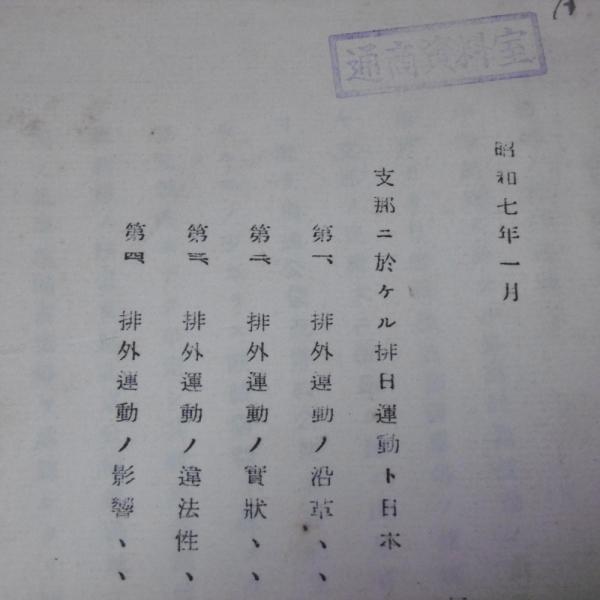 通商資料室
昭和七年一月
支那ニ於ケル排日運動ト日本
第一、排外運動ノ沿革、、、
第二、排外運動ノ實狀、、、
第三、排外運動ノ違法性、、
第四、排外運動ノ影響、、、